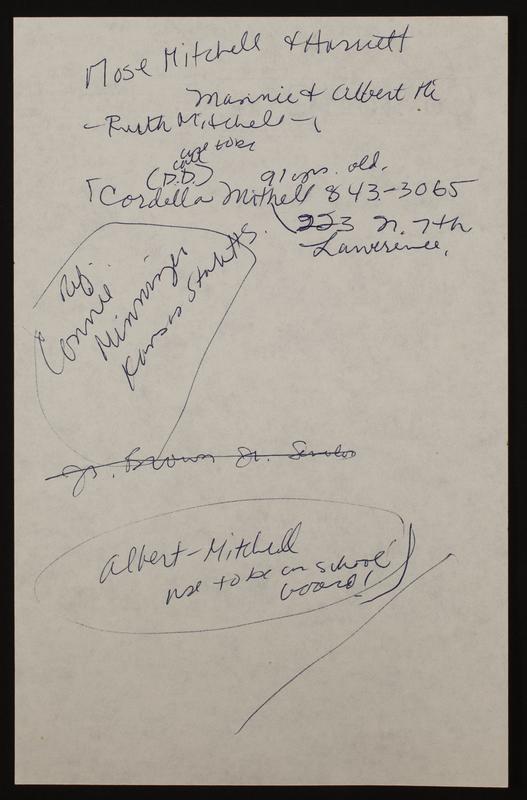 Mose Mitchell & Harriett
Mannie & Albert Mi
- Ruth Mitchell -
use to be
(D.D.) 91 yrs. old.
Cordella Mitchell 843-3065
223 N. 7th
Lawrence,
Ref.
Connie
Menninger
Kansas State Hs.
Jr. Brown Jr.
Albert-Mitchell
use to be on school
board!